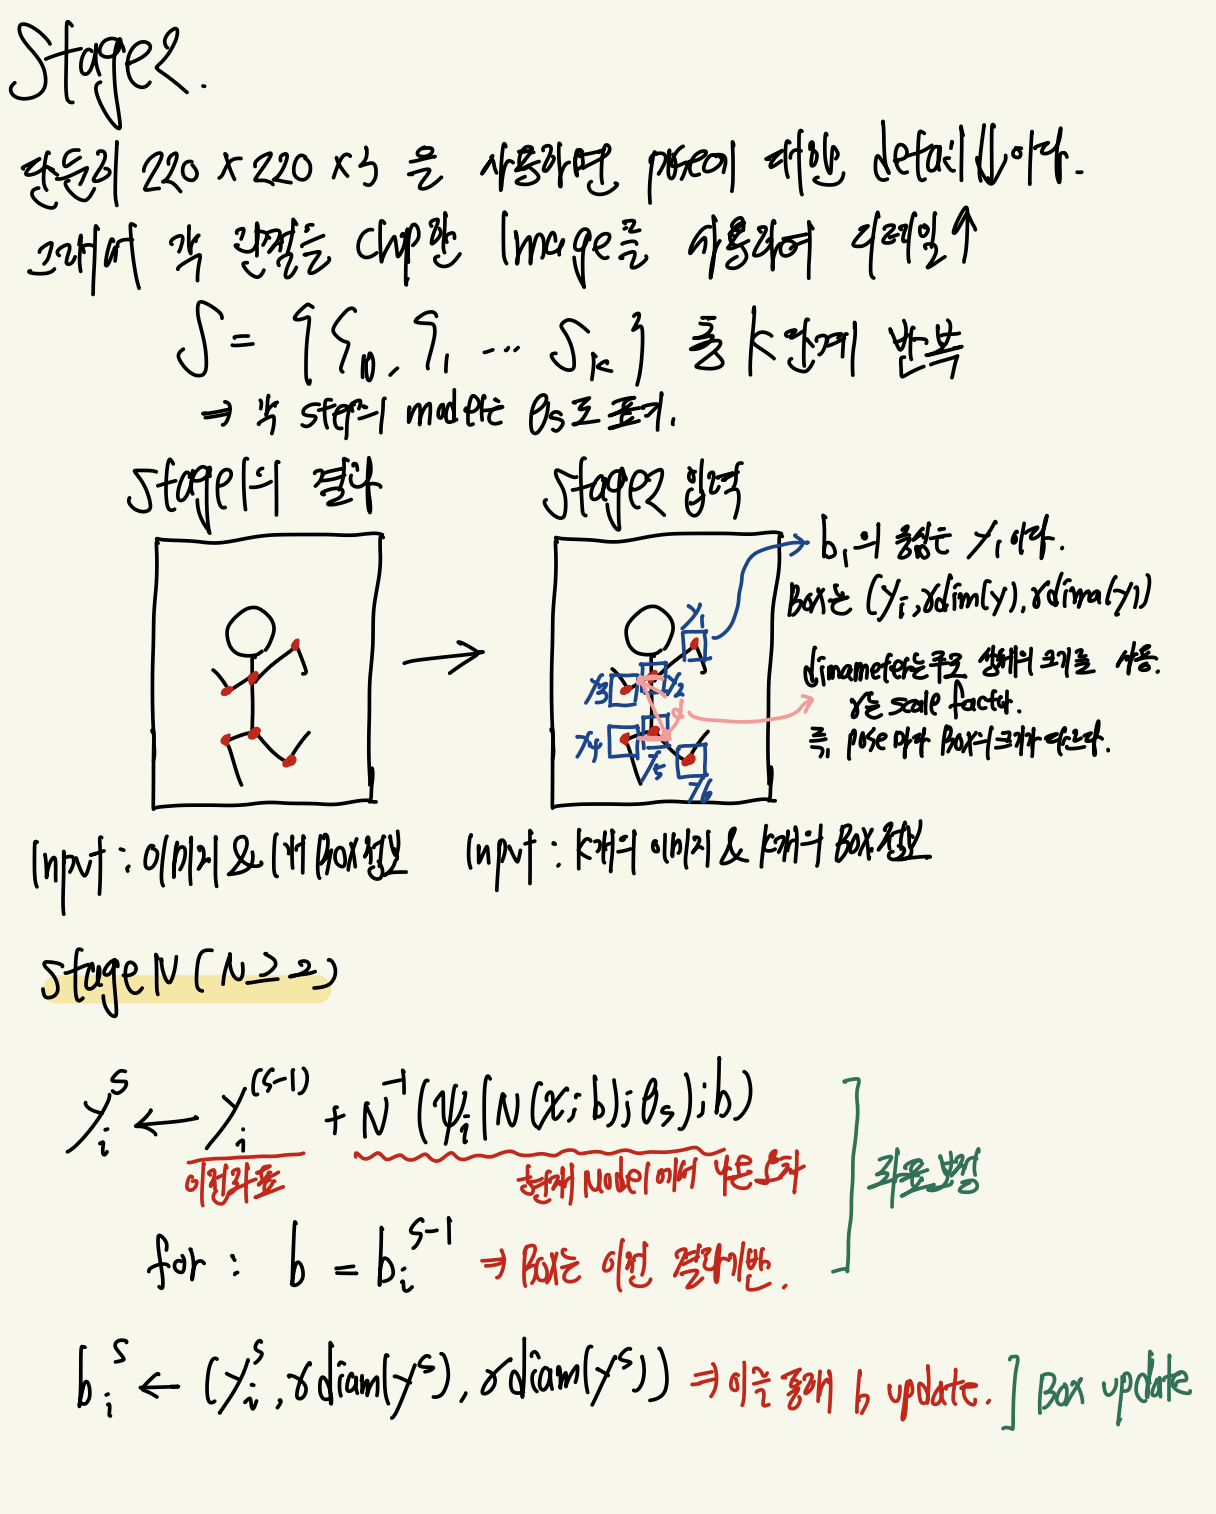 Stage2.
단순히 220 x 220 x 3 을 사용하면 pose에 대한 detail↓이다.
그래서 각 관절을 crop한 Image를 사용하여 디테일↑
S = {S0, S1 ... Sk} 총 k단계 반복
⇒ 각 step의 model는 θs로 표기.
Stage1의 결과
Stage2 입력
b1의 중심은 y1이다.
Box는 (yi, σdim(y), σdima(y))
dimameter는 주로 상체의 크기를 사용.
σ는 scale factor.
즉, pose 마다 Box의 크기가 다르다.
y1
y2
y3
d
y4
y5
y6
Input : 이미지 & 1개 Box정보
Input : k개의 이미지 & k개의 Box 정보
Stage N (N ≥ 2)
yi^s ← yi^(s-1) + N^-1(ψi(N(x; b); θs); b)
이전좌표
현재 Model에서 나온 오차
좌표 보정
for : b = bi^s-1 ⇒ Box는 이전 결과기반.
bi^s ← (yi^s, σdiam(y^s), σdiam(y^s)) ⇒ 이를 통해 b update.
Box update